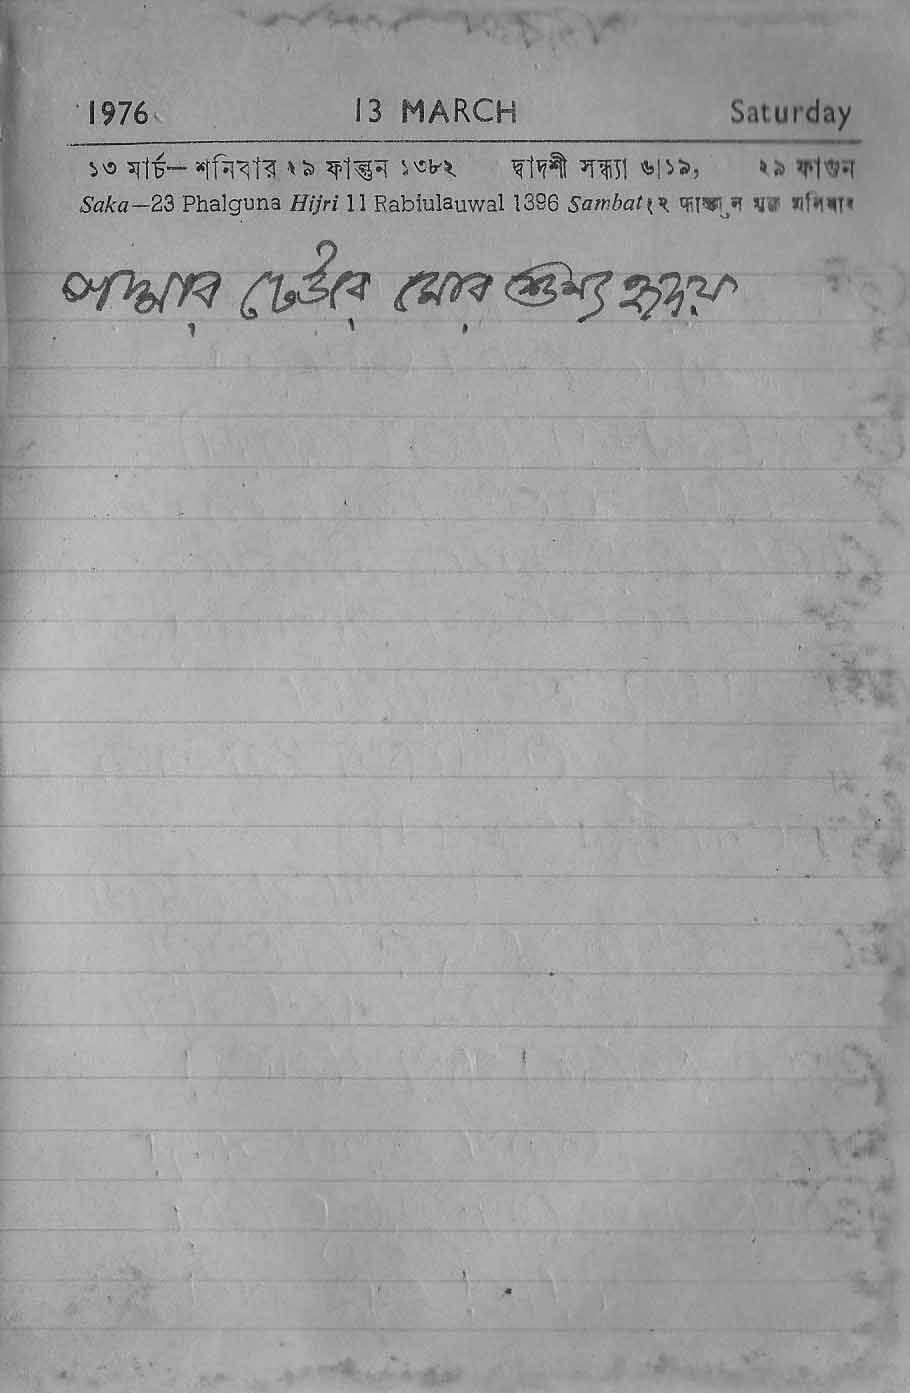 1976 13 MARCH Saturday
১৩ মার্চ— শনিবার ২৯ ফাল্গুন ১৩৮২ দ্বাদশী সন্ধ্যা ৬|১৯, ২৯ ফাগুন
Saka—23 Phalguna Hijri 11 Rabiulauwal 1396 Sambat १२ फाल्गुन शनिबार
পদ্মার ঢেউরে মোর শুন্য হৃদয়